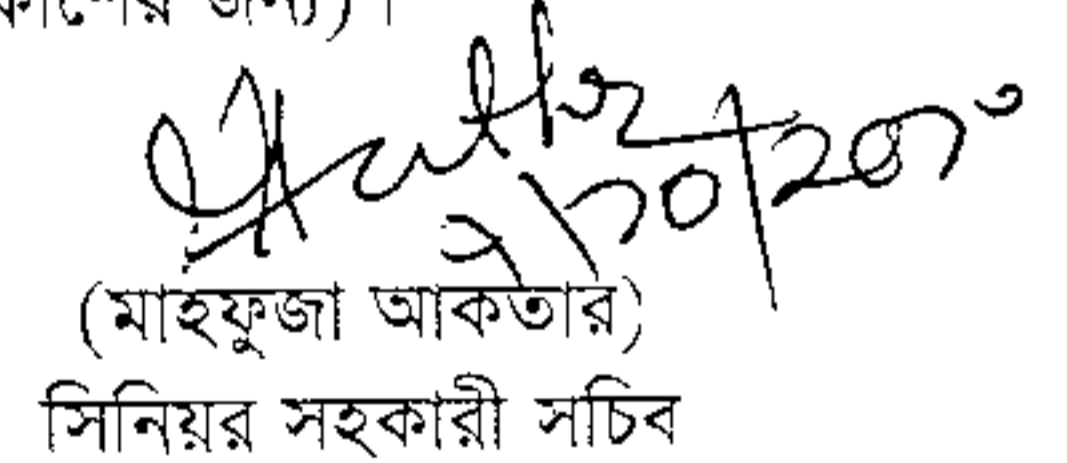 জন্য)।
২/১০/২০১৩
(মাহফুজা আকতার)
সিনিয়র সহকারী সচিব